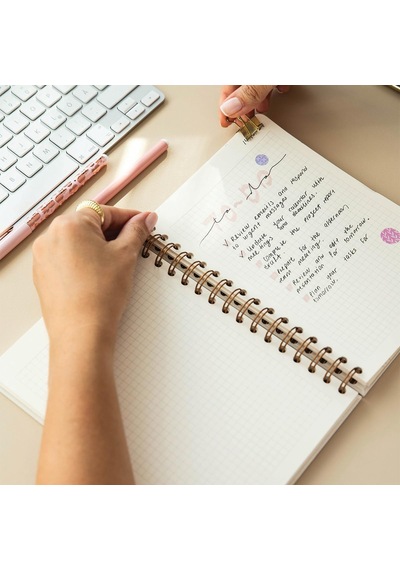 to do
Review emails and respond
to urgent messages
Update your calendar with
meetings and deadlines
Complete the project report
draft
Prepare for the afternoon
team meeting.
Review and edit the
presentation for tomorrow.
Plan your tasks for
tomorrow.